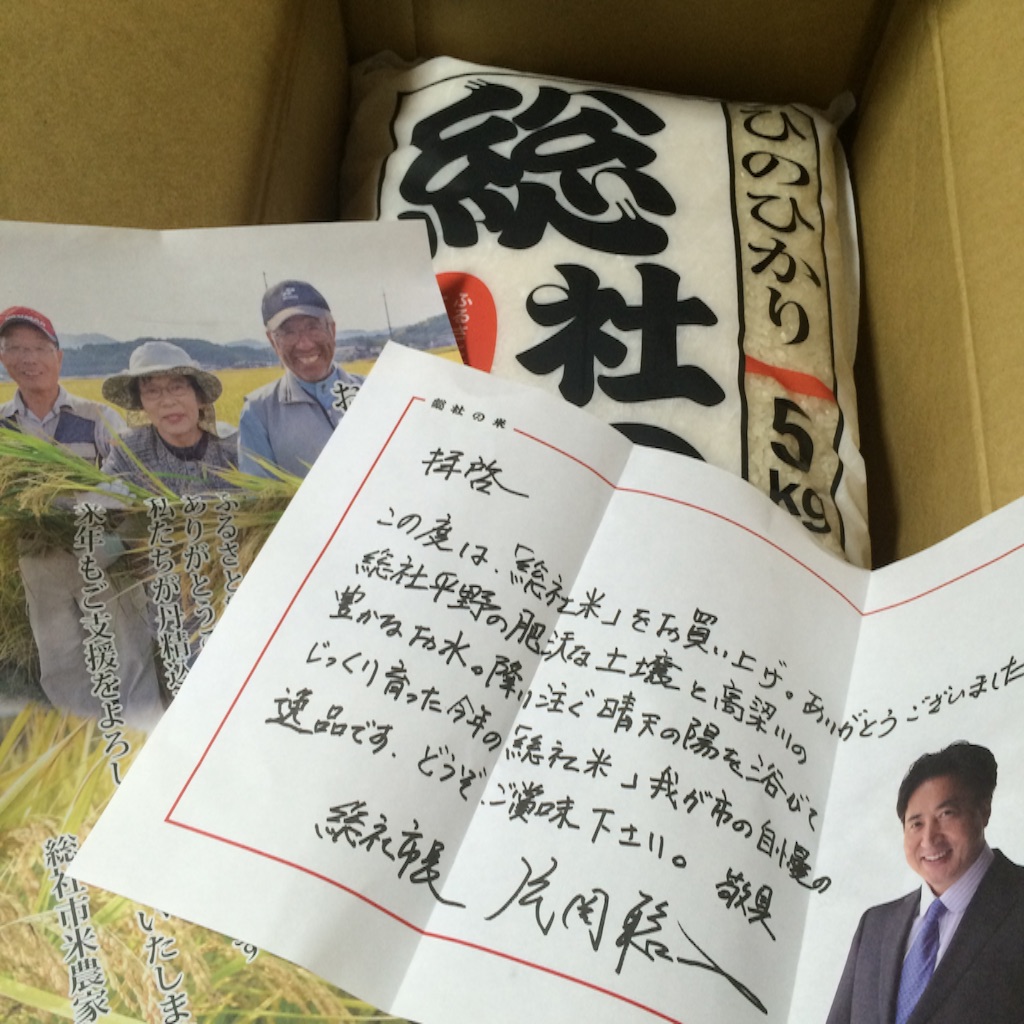 総社
ひのひかり
5
kg
総社の米
拝啓
この度は、「総社米」をお買い上げ。ありがとうございました
総社平野の肥沃な土壌と高梁川の
豊かなお水。降り注ぐ晴天の陽を浴びて
じっくり育った今年の「総社米」我が市の自慢の
逸品です。どうぞご賞味下さい。 敬具
総社市長 片岡聡一
ふるさと
ありがとう
私たちが丹精
来年もご支援をよろし
いたしま
す
総社市米農家